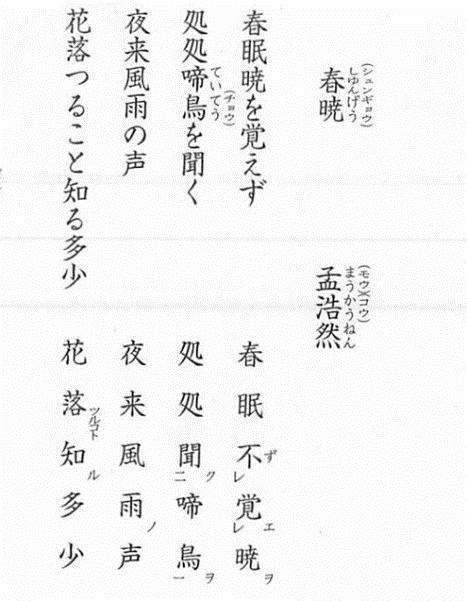 春暁
(シュンギョウ)
しゅんげう
孟浩然
(モウ)(コウ)
まうかうねん
春眠暁を覚えず
処処啼鳥を聞く
(チョウ)
ていてう
夜来風雨の声
花落つること知る多少
春眠不ず㆑覚エ㆑暁ヲ
処処聞ク㆓啼鳥ヲ㆒
夜来風雨ノ声
花落ツルコト知ル多少